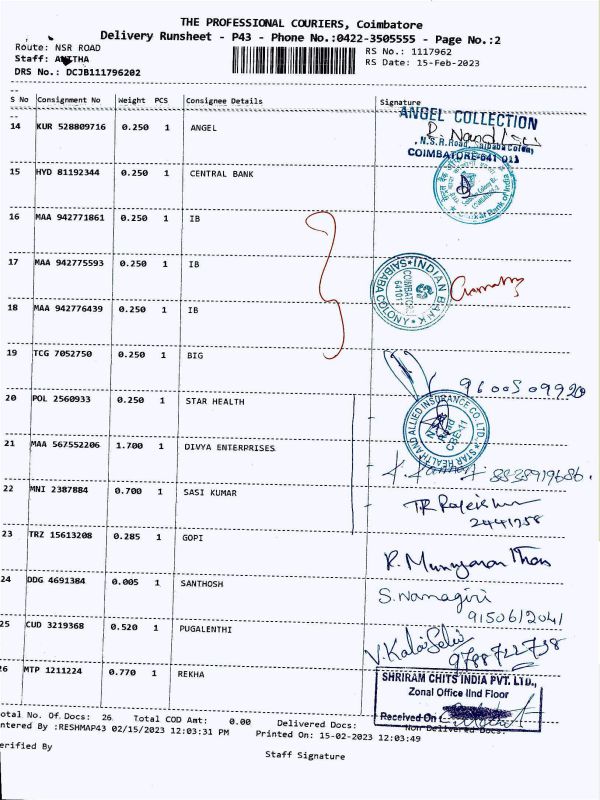 THE PROFESSIONAL COURIERS, Coimbatore
Delivery Runsheet - P43 - Phone No.:0422-3505555 - Page No.:2
Route: NSR ROAD
RS No.: 1117962
Staff: ANITHA
RS Date: 15-Feb-2023
DRS No.: DCJB111796202
S No Consignment No Weight PCS Consignee Details Signature
14 KUR 528809716 0.250 1 ANGEL
ANGEL COLLECTION
N.S.R. Road, Saibaba Colony,
COIMBATORE-641 011
15 HYD 81192344 0.250 1 CENTRAL BANK
16 MAA 942771861 0.250 1 IB
17 MAA 942775593 0.250 1 IB
INDIAN BANK
SAIBABA COLONY
COIMBATORE
64101
18 MAA 942776439 0.250 1 IB
19 TCG 7052750 0.250 1 BIG
9600509920
20 POL 2560933 0.250 1 STAR HEALTH
STAR HEALTH AND ALLIED INSURANCE CO. LTD.
CBE-11
21 MAA 567552206 1.700 1 DIVYA ENTERPRISES
8838919686.
22 MNI 2387884 0.700 1 SASI KUMAR
2441758
23 TRZ 15613208 0.285 1 GOPI
24 DDG 4691384 0.005 1 SANTHOSH
S. Namagiri
9150612041
25 CUD 3219368 0.520 1 PUGALENTHI
V. KalaiSelvi
9788722738
26 MTP 1211224 0.770 1 REKHA
SHRIRAM CHITS INDIA PVT. LTD.,
Zonal Office IInd Floor
Received On
otal No. Of Docs: 26 Total COD Amt: 0.00 Delivered Docs: Non Delivered Docs:
ntered By :RESHMAP43 02/15/2023 12:03:31 PM Printed On: 15-02-2023 12:03:49
erified By
Staff Signature